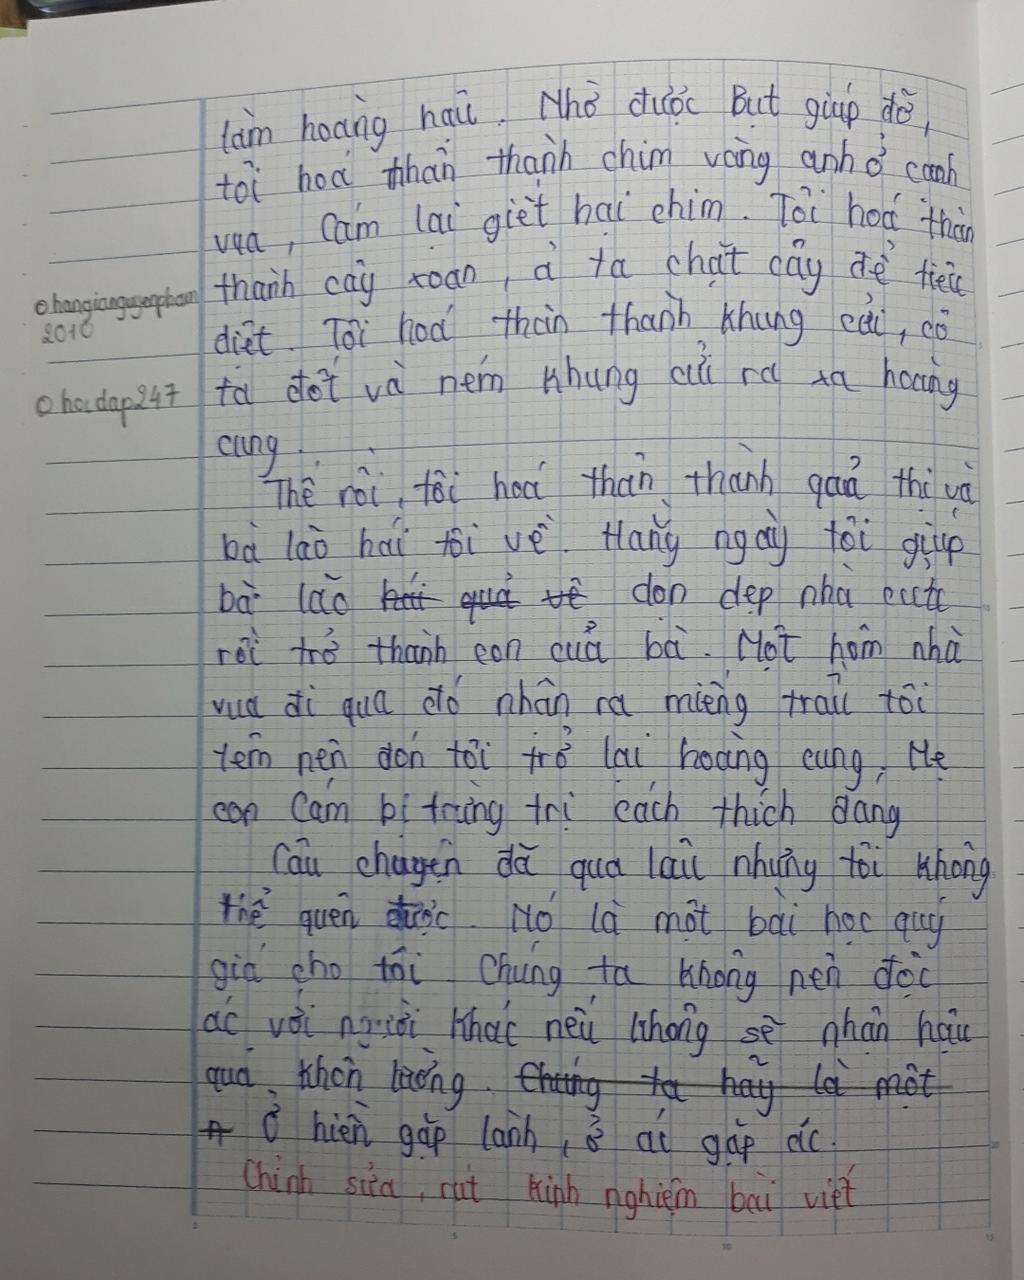 làm hoàng hậu. Nhờ được Bụt giúp đỡ,
tôi hoá thân thành chim vàng anh ở cạnh
vua, Cám lại giết hại chim. Tôi hoá thân
thành cây xoan, ả ta chặt cây để tiêu
diệt. Tôi hoá thân thành khung cửi, cô
ta đốt và ném khung cửi ra xa hoàng
cung.
Thế rồi, tôi hoá thân thành quả thị và
bà lão hái tôi về. Hằng ngày tôi giúp
bà lão hái quả về dọn dẹp nhà cửa
rồi trở thành con của bà. Một hôm nhà
vua đi qua đó nhận ra miếng trầu tôi
têm nên đón tôi trở lại hoàng cung, Mẹ
con Cám bị trừng trị cách thích đáng
Câu chuyện đã qua lâu nhưng tôi không
thể quên được. Nó là một bài học quý
giá cho tôi Chúng ta không nên độc
ác với người khác nếu không sẽ nhận hậu
quả khôn lường. Chúng ta hãy là một
Ở hiền gặp lành, ở ác gặp ác.
Chỉnh sửa, rút kinh nghiệm bài viết
hangiangnguyenpham
2010
hoidap247